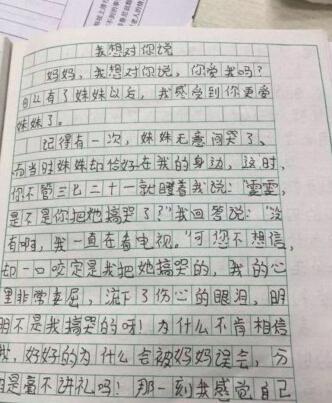 我想对你说
妈妈，我想对你说，你爱我吗？
自从有了妹妹以后，我感受到你更爱
妹妹了。
记得有一次，妹妹无意间哭了、
而当时妹妹却恰好在我的身边，这时，
你不管三七二十一就瞪着我说：“雯雯，
是不是你把她搞哭了？”我回答说：“没
有啊，我一直在看电视。”可您不想信，
却一口咬定是我把她搞哭的，我的心
里非常委屈，流下了伤心的眼泪，明
明不是我搞哭的呀！为什么不肯相信
我，好好的为什么会被妈妈误会，
是毫不讲礼吗！那一刻我感觉自己